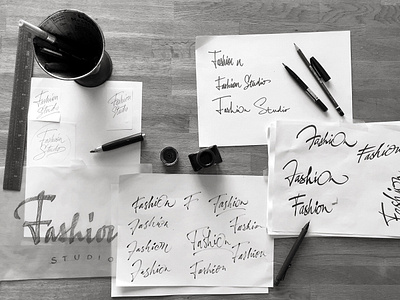 Fashion
Studio
Fashion
Studio
Fashion
Studio
Fashion
STUDIO
Fashion
Fashion Studio
Fashion Studio
Fashion F Fashion
Fashion
Fashion
Fashion
Fashion
Fashion
Fashion
Fashion
Fashion
Fashion
Fashion
Fashion